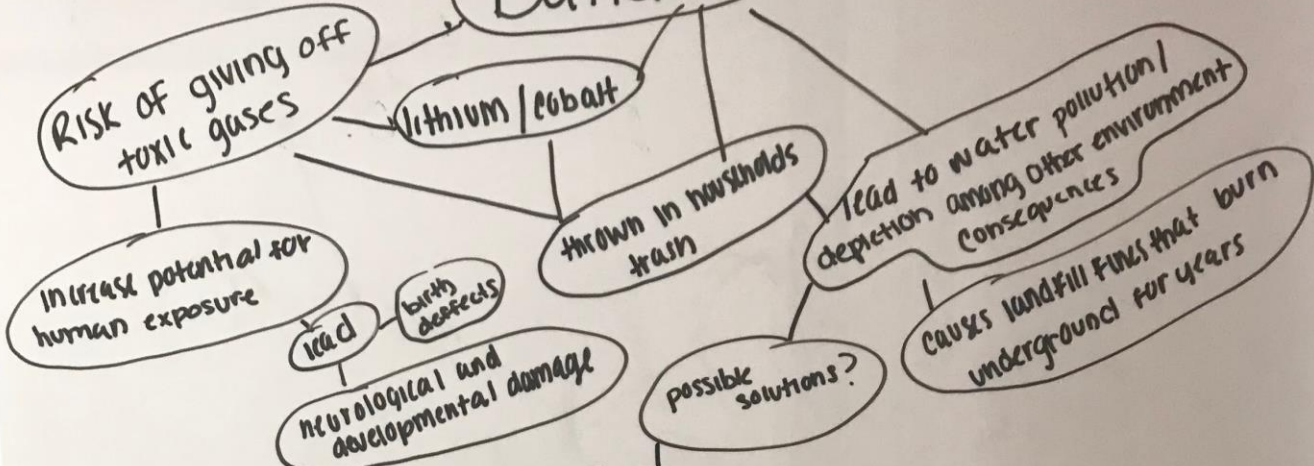 Risk of giving off
toxic gases
lithium/cobalt
thrown in households
trash
lead to water pollution/
depletion among other environment
consequences
increase potential for
human exposure
lead
birth
deffects
neurological and
developmental damage
possible
solutions?
causes landfill fires that burn
underground for years